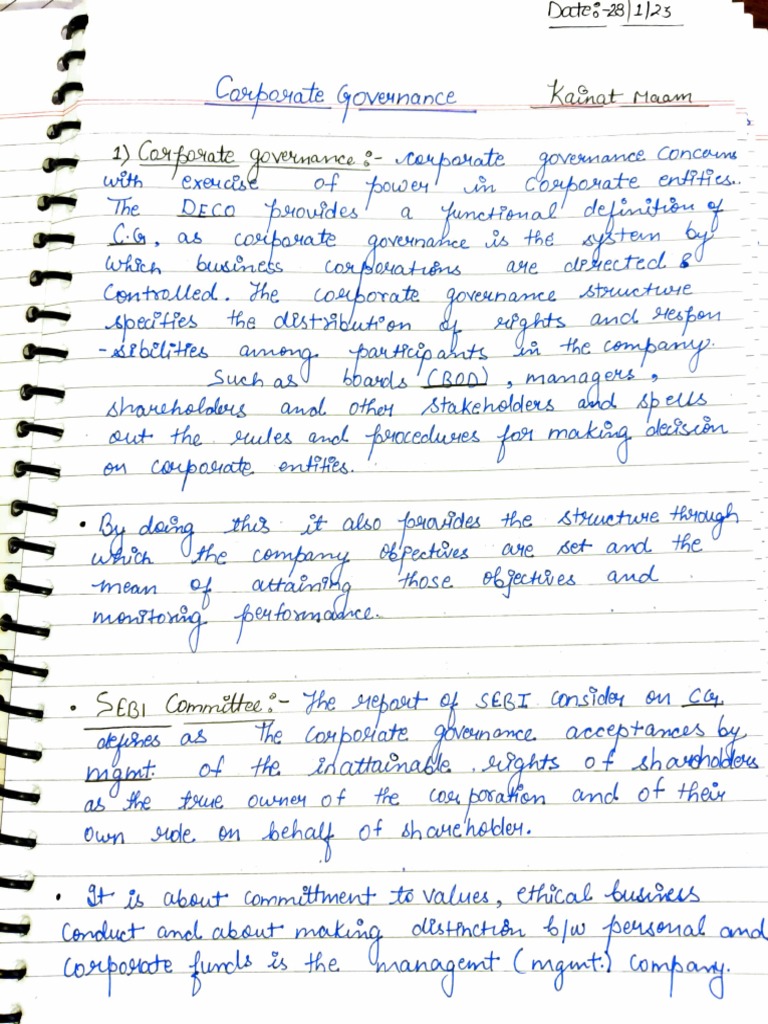 Date:-28/1/23
Corporate Governance Kainat Maam
1) Corporate governance:- corporate governance concerns
with exercise of power in corporate entities.
The DECO provides a functional definition of
C.G, as corporate governance is the system by
which business corporations are directed &
controlled. The corporate governance structure
specifies the distribution of rights and respon
-sibilities among participants in the company.
Such as boards (BOD), managers,
shareholders and other stakeholders and spells
out the rules and procedures for making decision
on corporate entities.
• By doing this it also provides the structure through
which the company objectives are set and the
mean of attaining those objectives and
monitoring performance.
• SEBI Committee:- The report of SEBI consider on CG,
defines as The corporate governance acceptances by
mgmt. of the inattainable rights of shareholders
as the true owner of the corporation and of their
own role on behalf of shareholder.
• It is about committment to values, ethical business
conduct and about making distinction b/w personal and
corporate funds is the managemt (mgmt.) company.